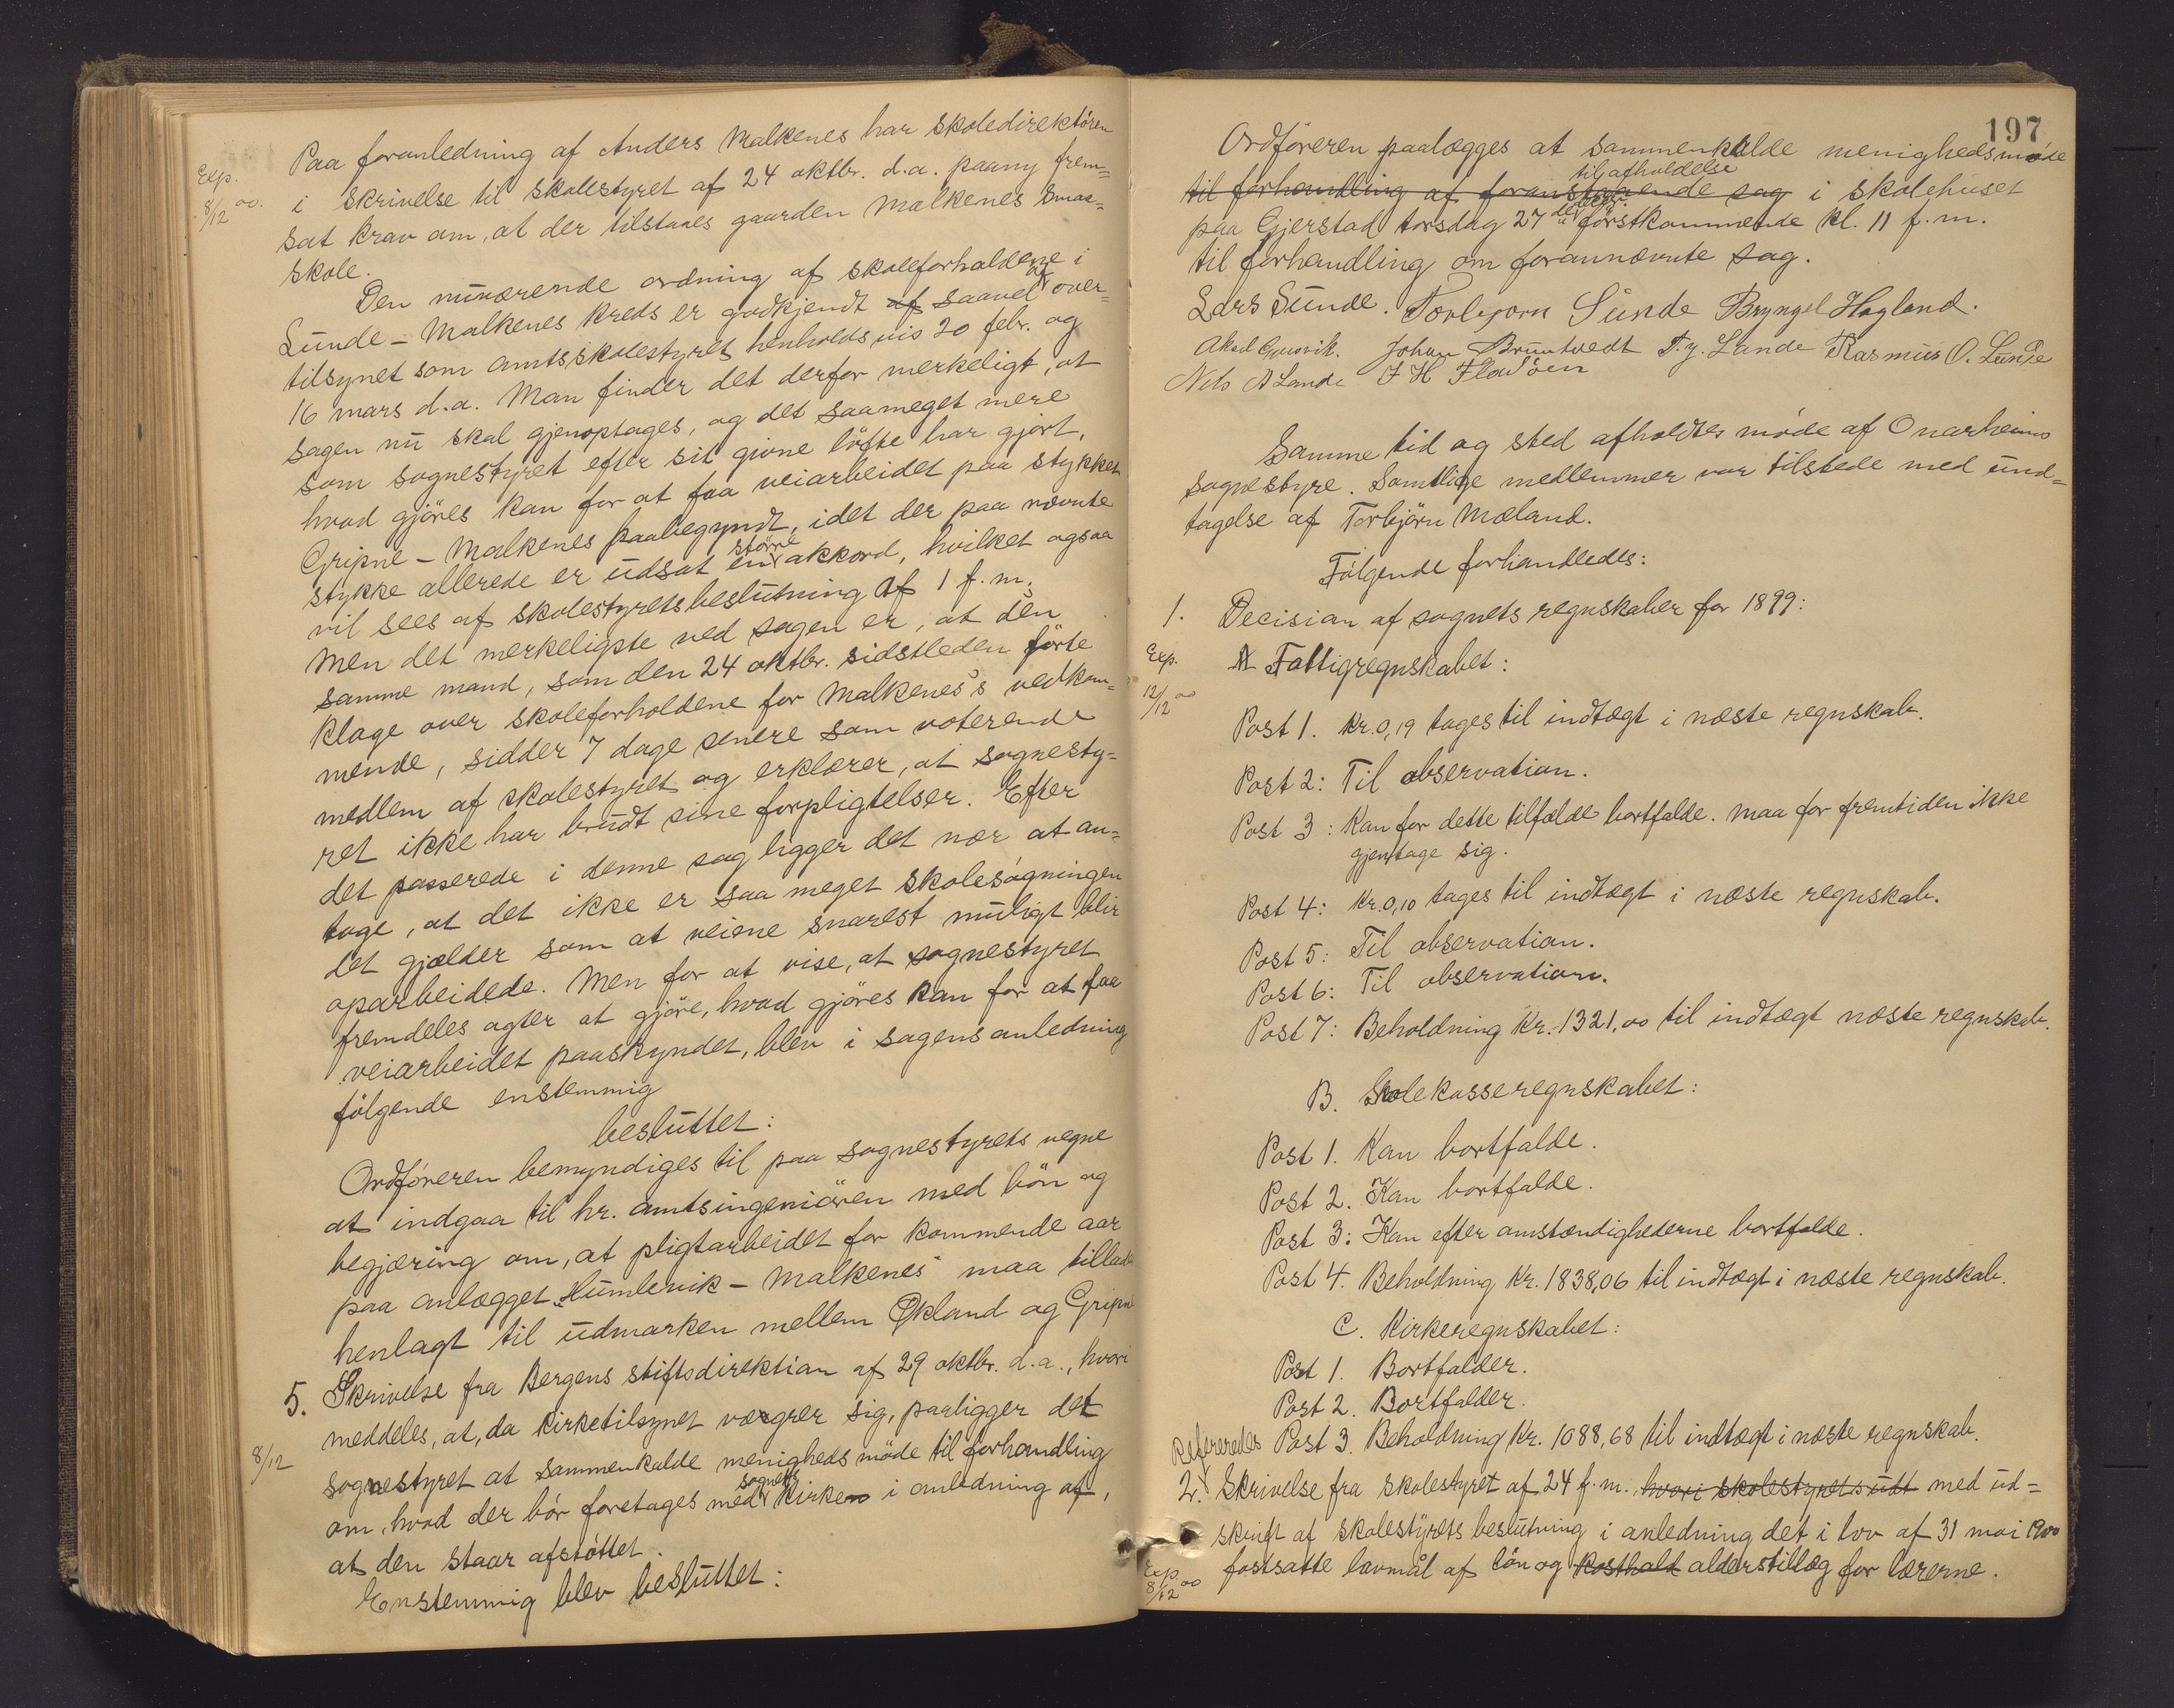 Paa foranledning af Anders Malkenes har skoledirektören
Exp.
8/12 00.
i skrivelse til skolestyret af 24 oktbr. d.a. paany frem=
sat krav om, at der tilstaaes gaarden Malkenes smaa=
skole.
Den nuværende ordning af skoleforholdene i
Lunde - Malkenes kreds er godkjendt af saavel af over=
tilsynet som amtsskolestyret henholdsvis 20 febr. og
16 mars d.a. Man finder det derfor merkeligt, at
sagen nu skal gjenoptages, og det saameget mere
som sognestyret efter sit givne löfte har gjort,
hvad gjöres kan for at faa veiarbeidet paa stykket
Gripne - Malkenes paabegyndt, idet der paa nævnte
stykke allerede er udsat en större akkord, hvilket ogsaa
vil sees af skolestyrets beslutning af 1 f.m.
Men det merkeligste ved sagen er, at den
samme mand, som den 24 oktbr. sidstleden förte
klage over skoleforholdene for Malkenes's vedkom=
mende, sidder 7 dage senere som voterende
medlem af skolestyret og erklærer, at sognesty=
ret ikke har brudt sine forpligtelser. Efter
det passerede i denne sag ligger det nær at an=
tage, at det ikke er saa meget skolesögningen
det gjælder som at veiene snarest muligt blir
oparbeidede. Men for at vise, at sognestyret
fremdeles agter at gjöre, hvad gjöres kan for at faa
veiarbeidet paaskyndet, blev i sagens anledning
fölgende enstemmig
besluttet:
Ordföreren bemyndiges til paa sognestyrets vegne
at indgaa til hr. amtsingeniören med bön og
begjæring om, at pligtarbeidet for kommende aar
paa anlægget „Humlevik - Malkenes" maa tillades
henlagt til udmarken mellem Økland og Gripne
5. Skrivelse fra Bergens stiftsdirektion af 29 oktbr. d.a., hvori
meddeles, at, da kirketilsynet vægrer sig, paaligger det
8/12
sognestyret at sammenkalde menighedsmöde til forhandling
om, hvad der bör foretages med sognets kirken i anledning af,
at den staar afstöttet.
Enstemmig blev besluttet:
197
Ordföreren paalægges at sammenkalde menighedsmöde
til afholdelse
til forhandling af foranstaaende sag i skolehuset
paa Gjerstad torsdag 27de förstkommende kl. 11 f.m.
til forhandling om forannævnte sag.
Lars Sunde. Torbjorn Sunde Bryngel Hagland.
Johan Bruntvedt T. J. Lande Rasmus O. Lunde
Nils A Lande
Samme tid og sted afholdtes möde af Onarheims
sognestyre. Samtlige medlemmer var tilstede med und=
tagelse af Torbjörn Mæland.
Fölgende forhandledes:
1. Decision af sognets regnskaber for 1899:
Exp.
12/12 00
A Fattigregnskabet:
Post 1. Kr. 0,19 tages til indtægt i næste regnskab.
Post 2: Til observation.
Post 3: Kan for dette tilfælde bortfalde. Maa for fremtiden ikke
gjentage sig.
Post 4: Kr. 0,10 tages til indtægt i næste regnskab.
Post 5: Til observation.
Post 6: Til observation.
Post 7: Beholdning Kr. 1321,00 til indtægt næste regnskab.
B. Skolekasseregnskabet:
Post 1. Kan bortfalde.
Post 2. Kan bortfalde.
Post 3: Kan efter omstændighederne bortfalde.
Post 4. Beholdning Kr. 1838,06 til indtægt i næste regnskab.
C. Kirkeregnskabet:
Post 1. Bortfalder.
Post 2. Bortfalder.
Post 3. Beholdning Kr. 1088,68 til indtægt i næste regnskab.
Refereredes
2. Skrivelse fra skolestyret af 24 f.m. hvori skolestyrets udt med ud=
skrift af skolestyrets beslutning i anledning det i lov af 31 mai 1900
Exp.
8/12 00
fastsatte lavmål af lön og kosthold alderstillæg for lærerne.